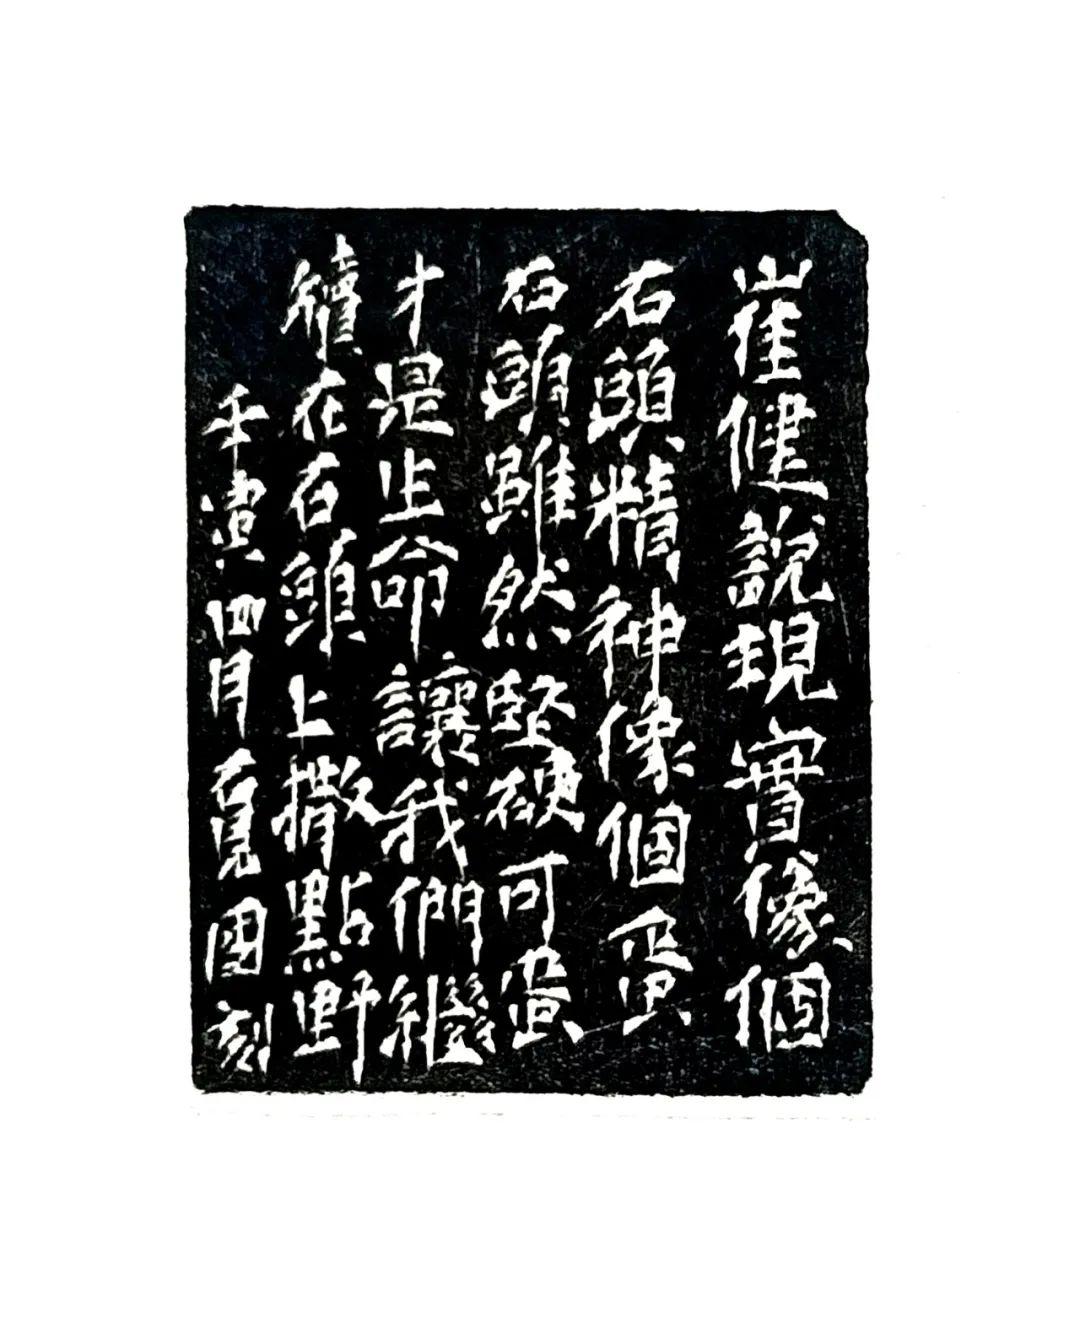 崔健說現實像個
石頭精神像個蛋
石頭雖然堅硬可蛋
才是生命讓我們繼
續在石頭上撒點野
壬寅四月袁國刻